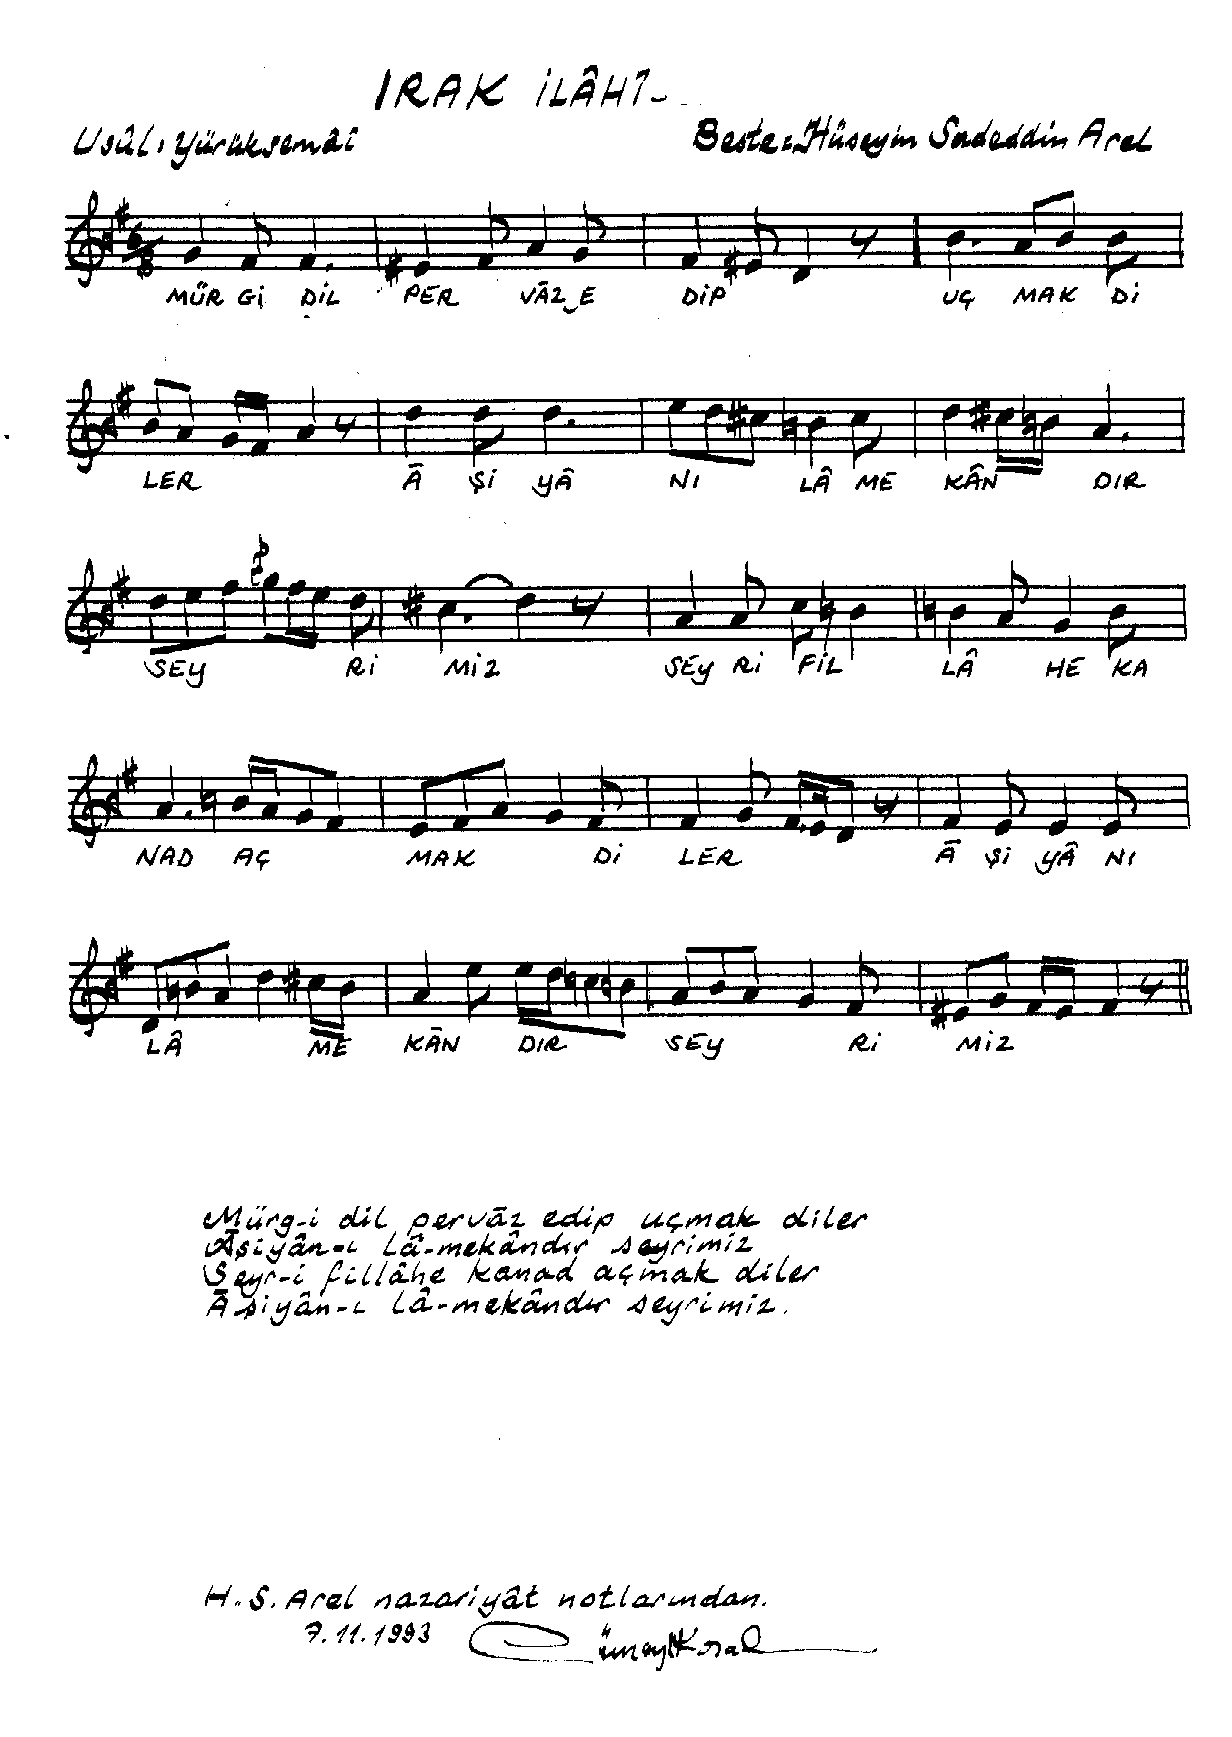 IRAK İLÂHÎ
Usûl: Yürüksemâî Beste: Hüseyin Sadeddin Arel
MÜR Gİ DİL PER VÂZ E DİP UÇ MAK Dİ
LER Â Şİ YÂ NI LÂ ME KÂN DIR
SEY Rİ MİZ SEY Rİ FİL LÂ HE KA
NAD AÇ MAK Dİ LER Â Şİ YÂ NI
LÂ ME KÂN DIR SEY Rİ MİZ
Mürg-i dil pervâz edip uçmak diler
Âşiyân-ı Lâ-mekândır seyrimiz
Seyr-i fillâhe kanad açmak diler
Âşiyân-ı Lâ-mekândır seyrimiz.
H.S. Arel nazariyât notlarından.
7.11.1993 Cüneyt Kosal